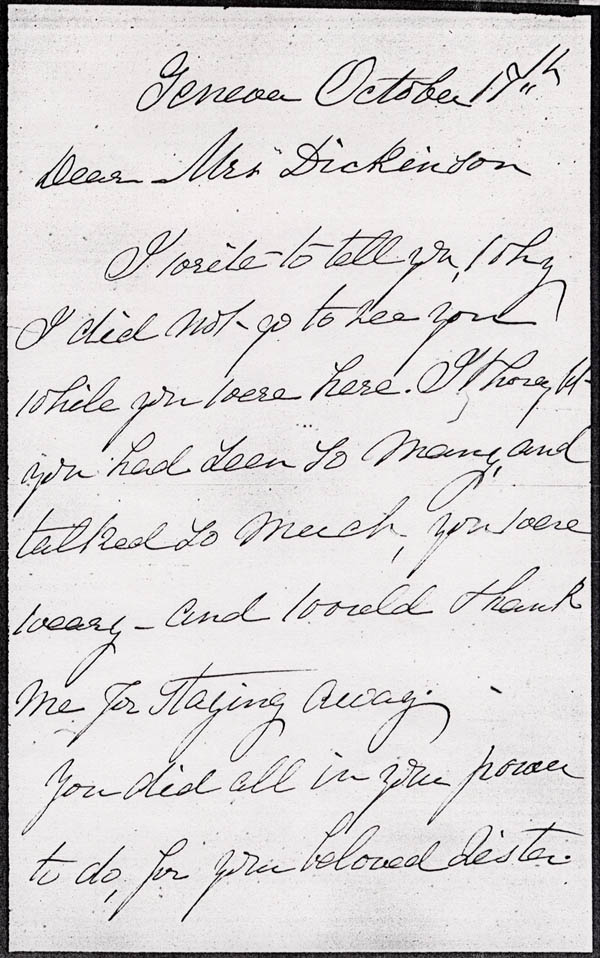 Geneva October 17th
Dear Mrs Dickinson
I write to tell you, why
I did not go to see you
while you were here. I thought
you had seen so many, and
talked so much, you were
weary - and would thank
me for staying away.
You did all in your power
to do, for your beloved sister.